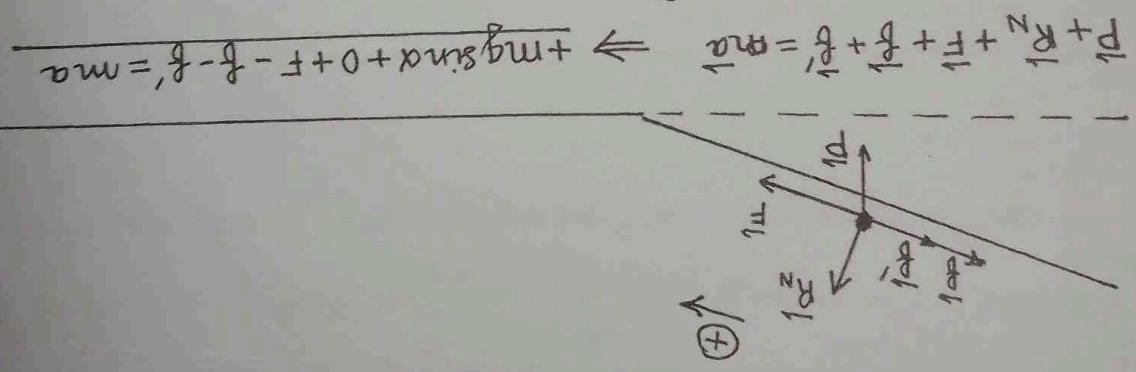 +
R⃗_N
f⃗
f⃗'
F⃗
P⃗
P⃗ + R⃗_N + F⃗ + f⃗ + f⃗' = ma⃗ ⇒ +mg sinα + 0 + F - f - f' = ma